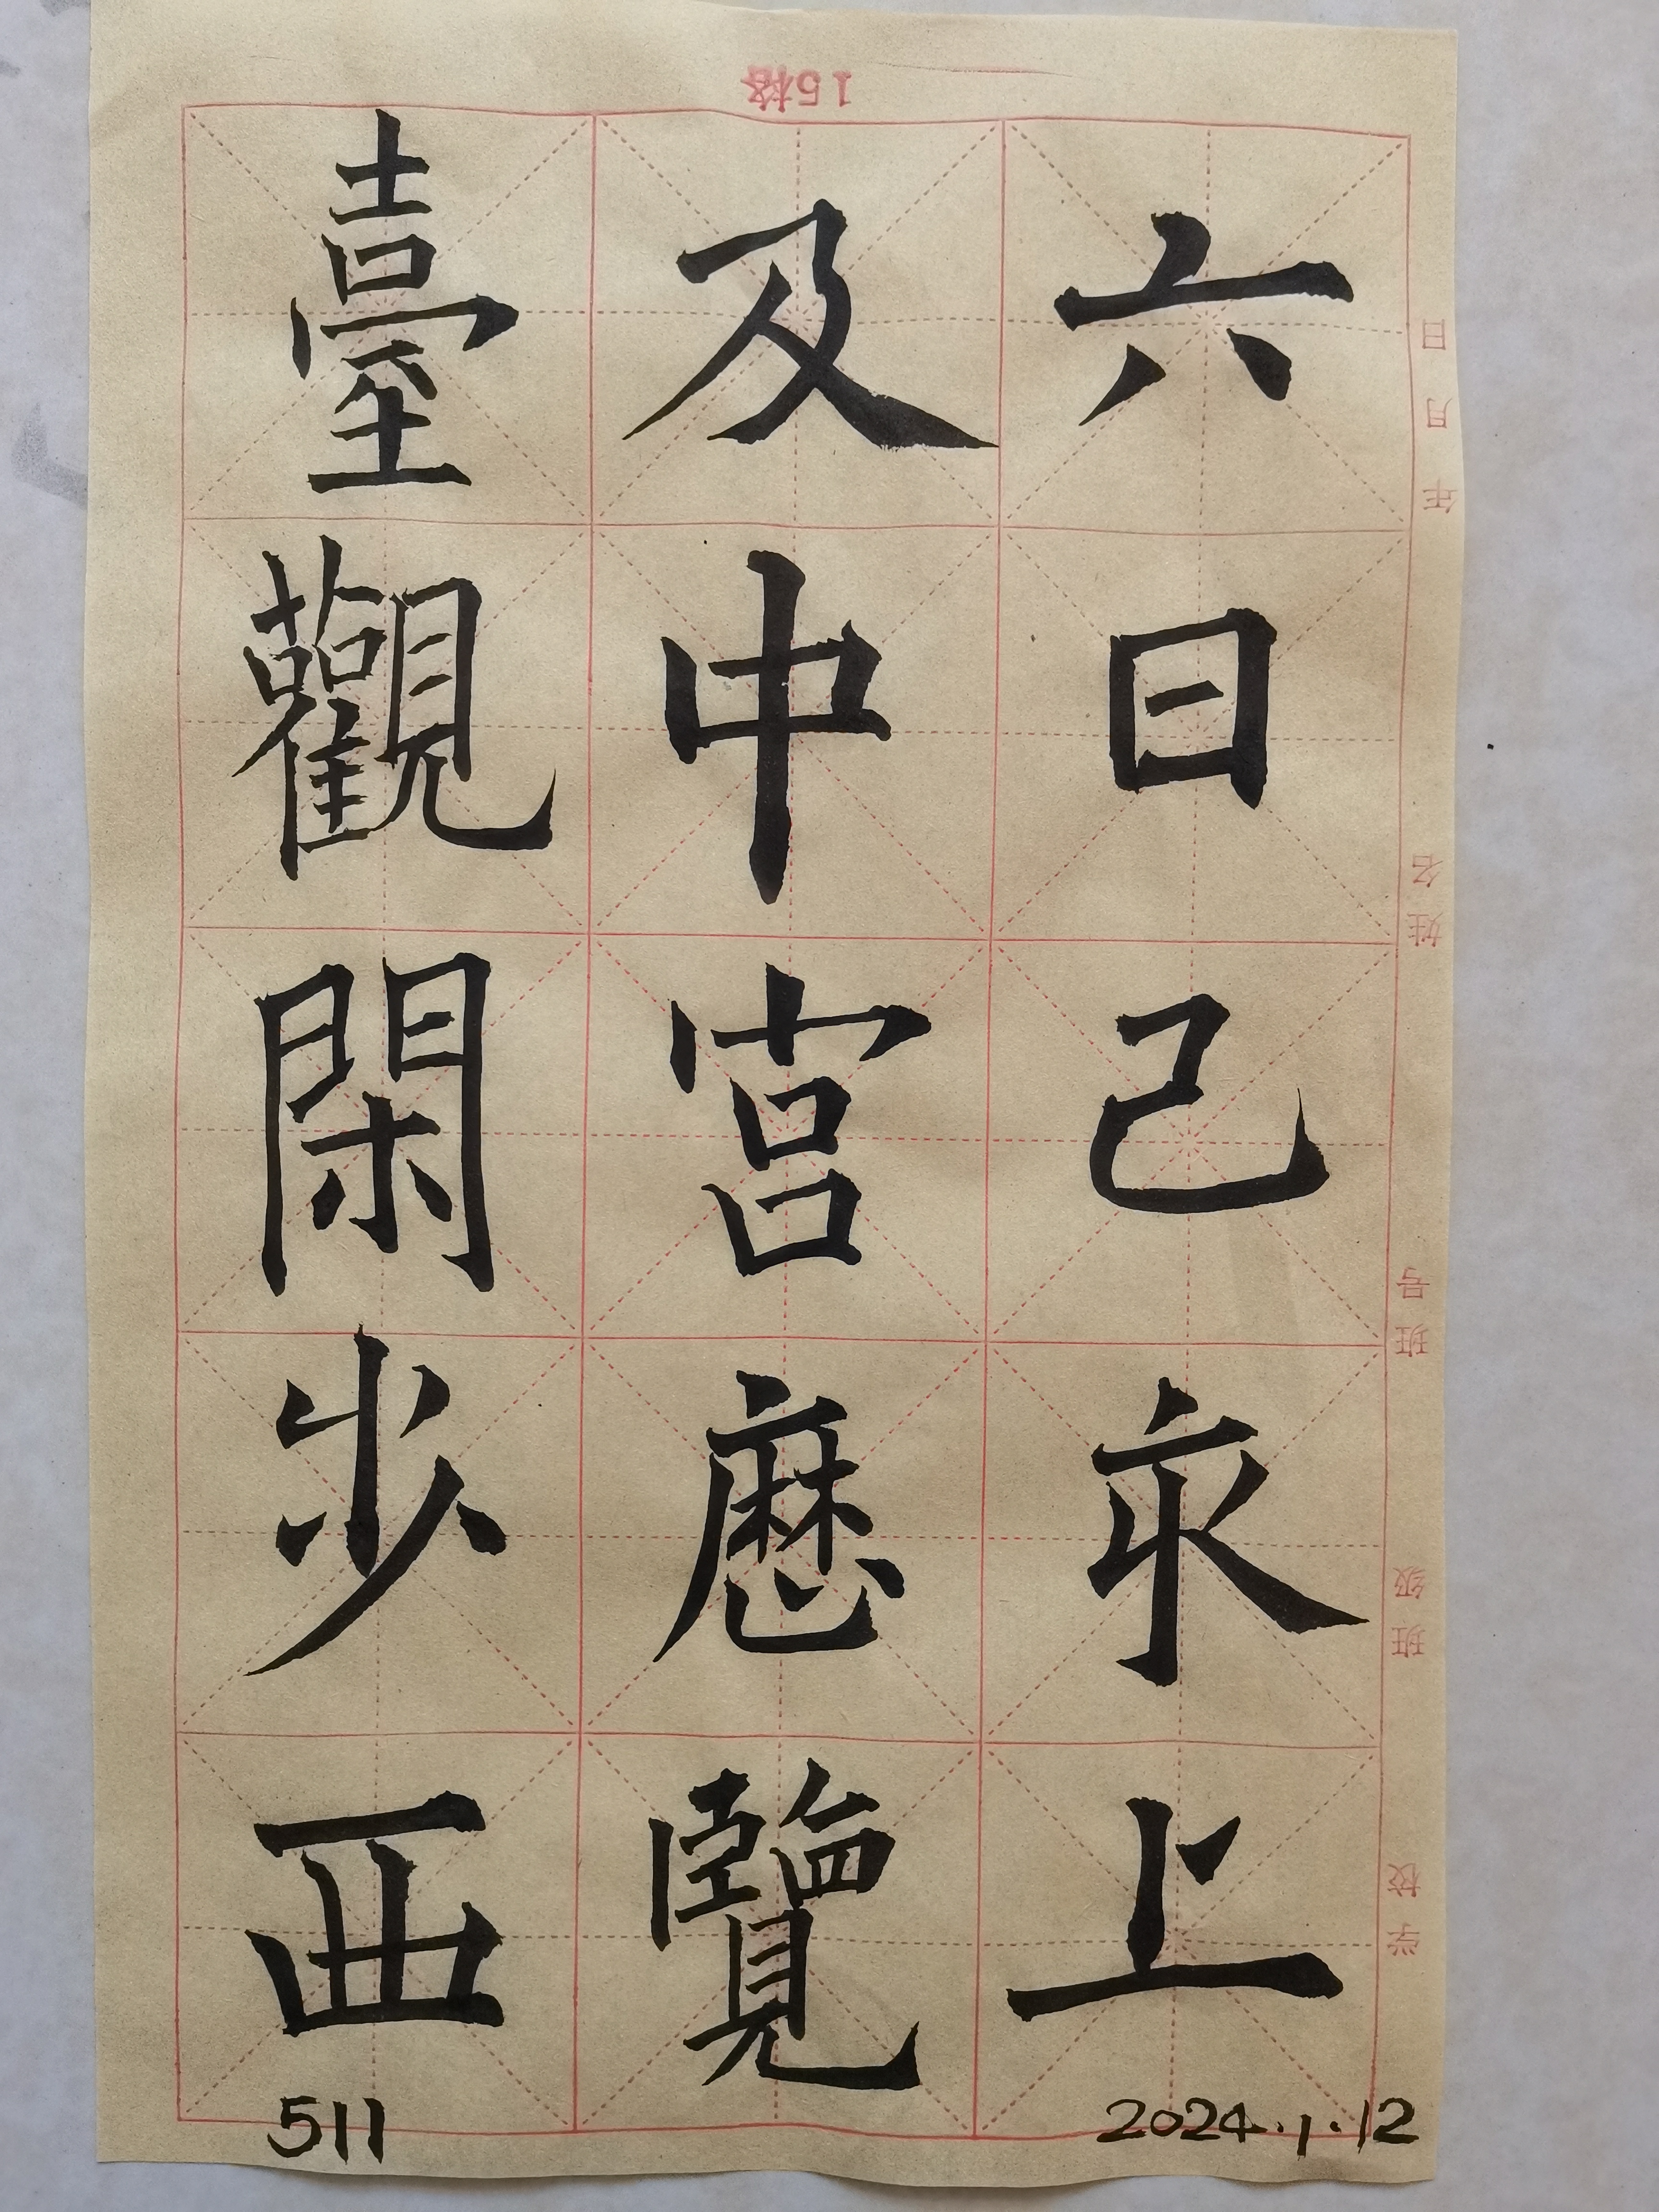 六日己亥上
及中宮歷覽
臺觀閑步西
2024.1.12
511
15格
学校 班级 班号 姓名 年 月 日